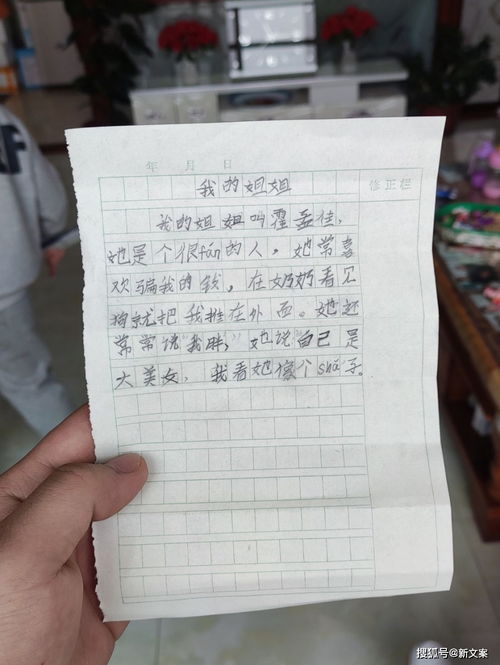 年 月 日
修正栏
我的姐姐
我的姐姐叫霍孟佳，
她是个很fán的人，她常喜
欢骗我的钱，在奶奶看见
狗就把我推在外面。她还
常常说我胖，她说自己是
大美女，我看她像个shǎ子。
搜狐号@新文案